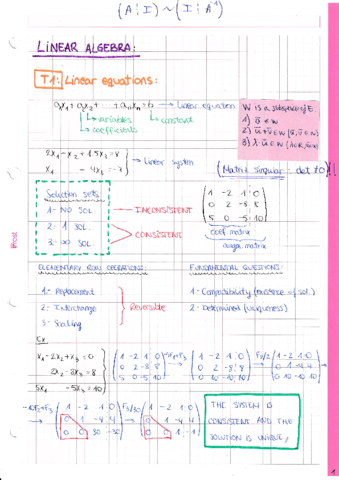 (A|I) ~ (I|A⁻¹)
LINEAR ALGEBRA:
T1: Linear equations:
a₁x₁ + a₂x₂ + ... + aₙxₙ = b → Linear equation
variables
constant
coefficients
W is a subspace of E:
1) 0̄ ∈ W
2) ū+v̄ ∈ W (ū, v̄ ∈ W)
3) λ·ū ∈ W (λ∈ℝ, ū∈W)
2x₁ - x₂ + 1.5x₃ = 8
x₁ - 4x₃ = -7
→ Linear system
(Matrix singular: det ≠ 0)!!
Solution sets
1- NO SOL. → INCONSISTENT
2- 1 SOL.
3- ∞ SOL.
→ CONSISTENT
(1 -2 1 : 0
0 2 -8 : 8
5 0 -5 : 10)
coeff matrix
augm. matrix
ELEMENTARY ROW OPERATIONS:
FUNDAMENTAL QUESTIONS:
1- Replacement
2- Interchange
3- Scaling
Reversible
1- Compatibility (existence of sol.)
2- Determined (uniqueness)
Ex
x₁ - 2x₂ + x₃ = 0
2x₂ - 8x₃ = 8
5x₁ - 5x₃ = 10
(1 -2 1 : 0
0 2 -8 : 8
0 10 -10 : 10)
F₂/2
(1 -2 1 : 0
0 1 -4 : 4
0 10 -10 : 10)
-10F₂+F₃
(1 -2 1 : 0
0 1 -4 : 4
0 0 30 : -30)
F₃/30
(1 -2 1 : 0
0 1 -4 : 4
0 0 1 : -1)
THE SYSTEM IS
CONSISTENT AND THE
SOLUTION IS UNIQUE!
1